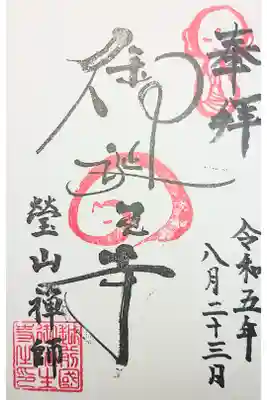 奉拝
令和五年
八月二十三日
御誕生寺
瑩山禅師